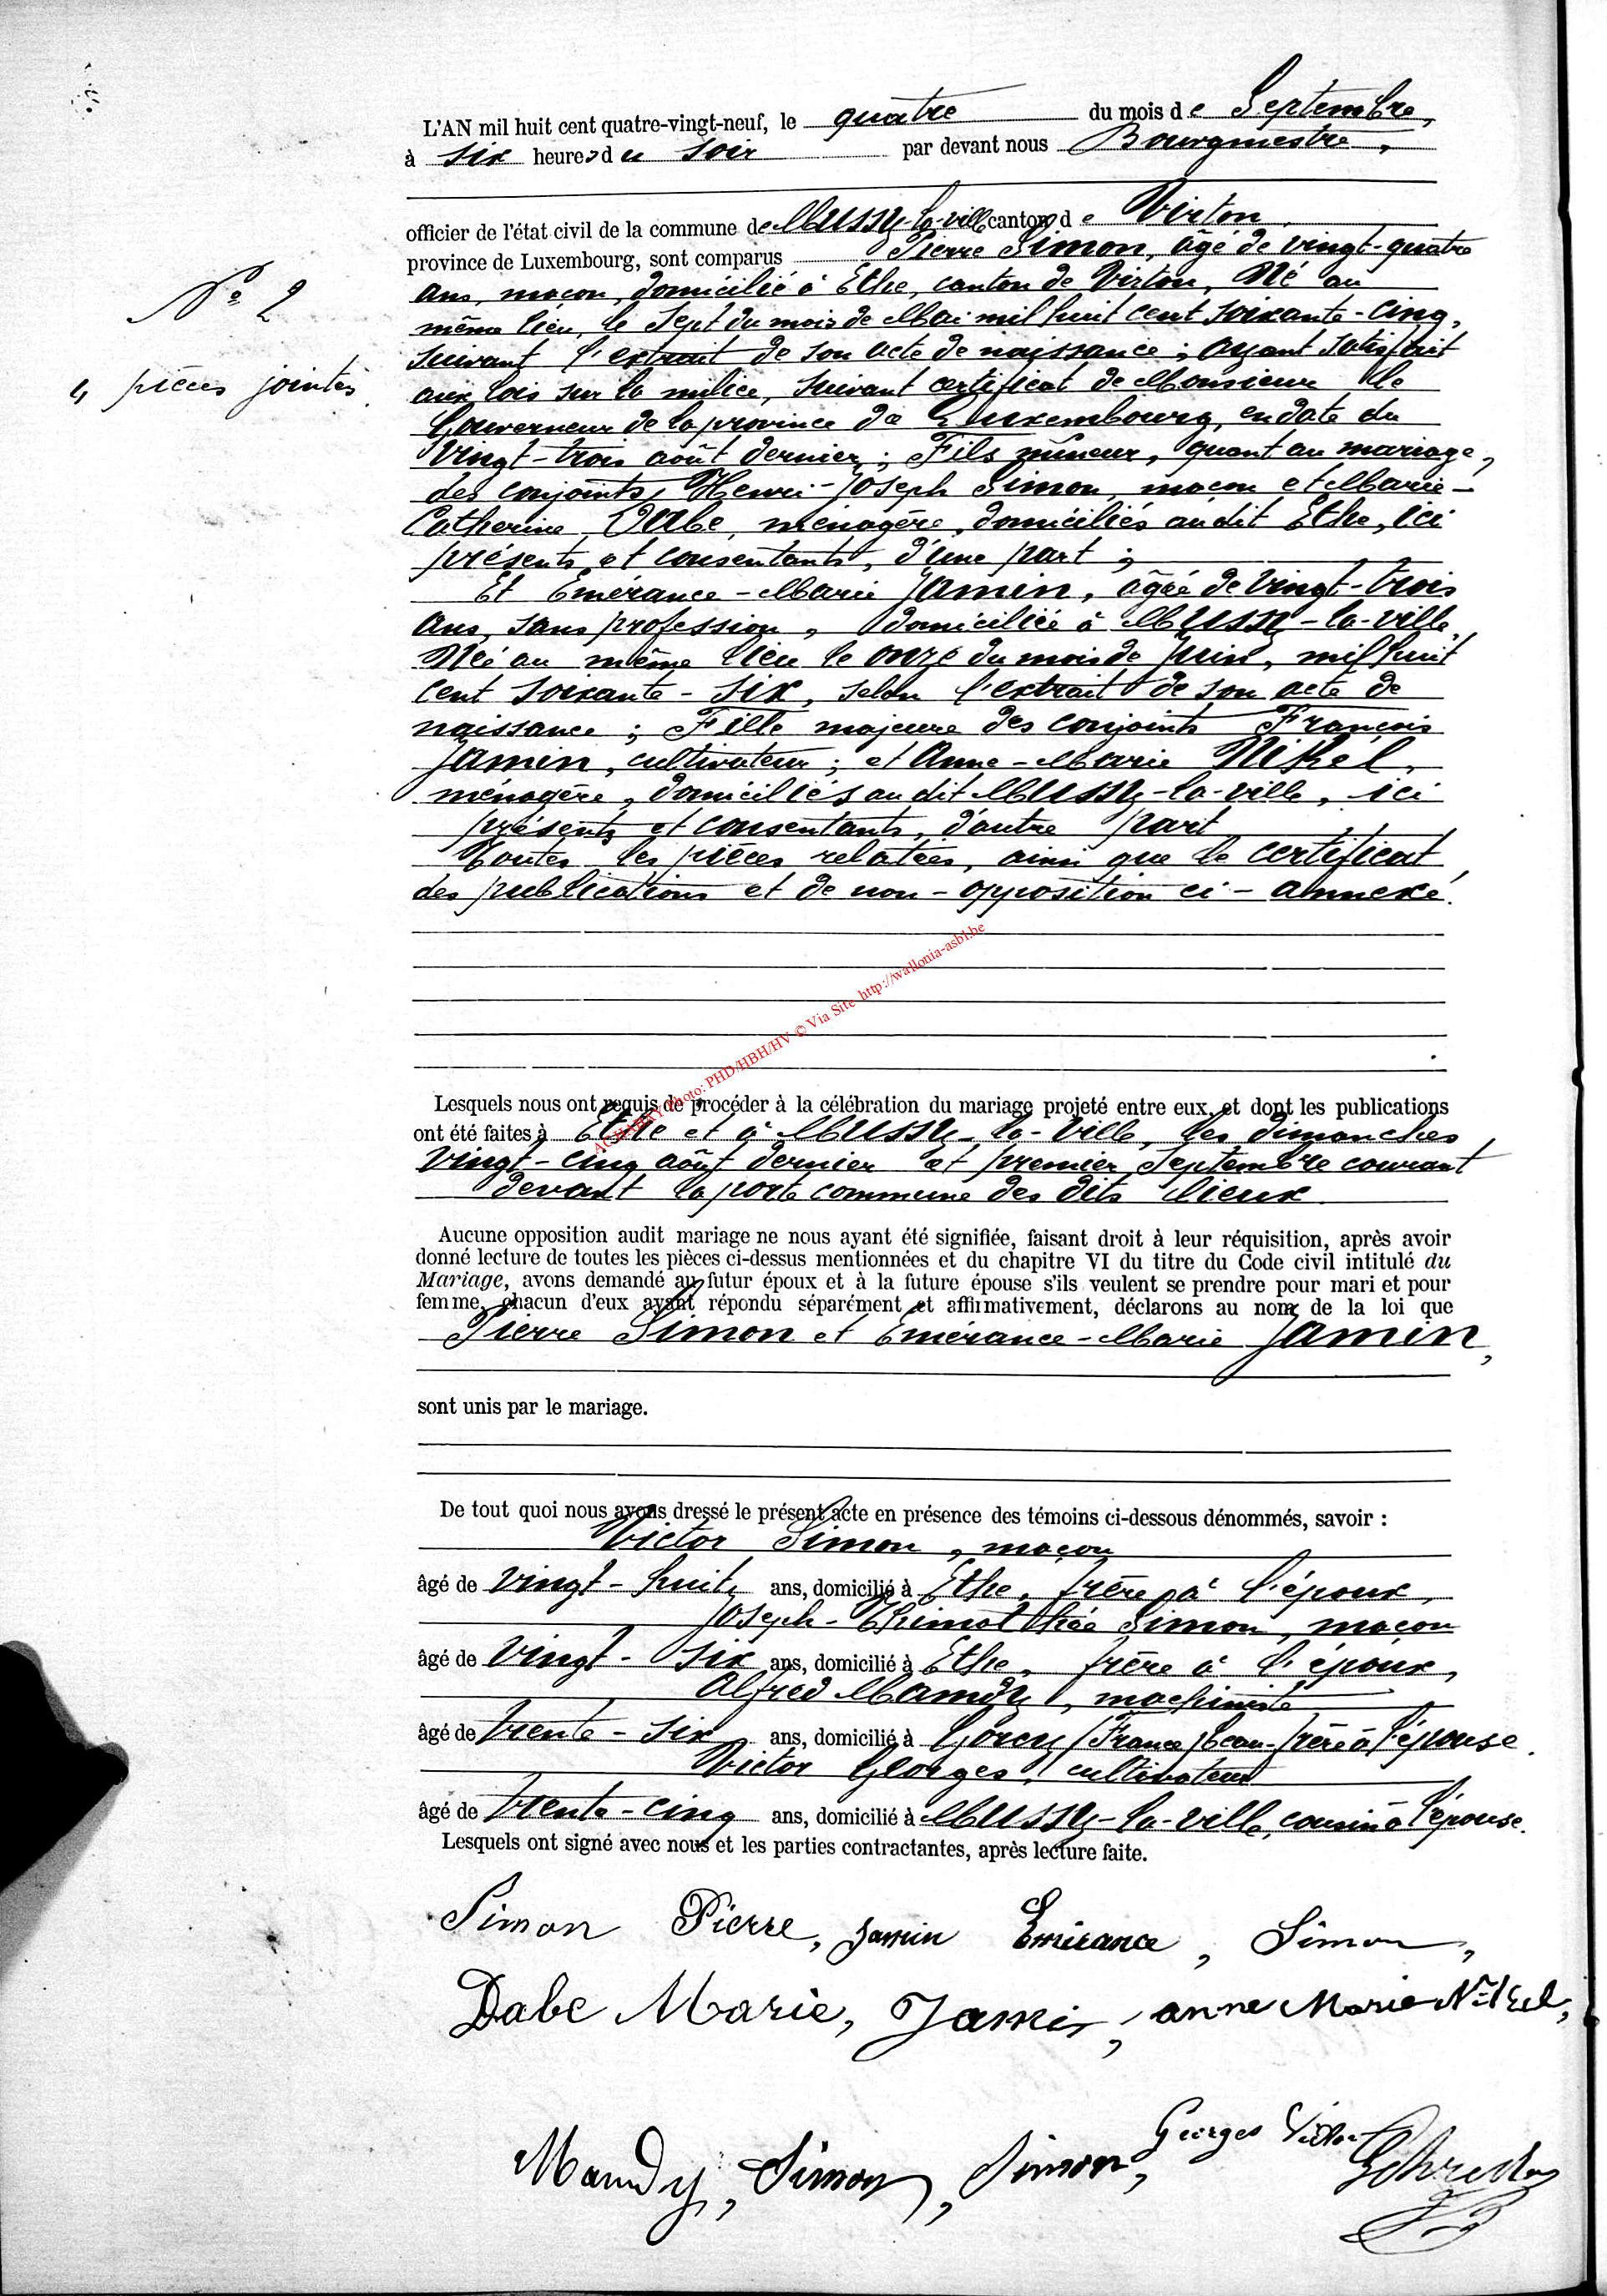 L'AN mil huit cent quatre-vingt-neuf, le quatre du mois de Septembre,
à six heures du soir par devant nous Bourgmestre,
officier de l'état civil de la commune de Mussy-la-ville canton de Virton,
province de Luxembourg, sont comparus Pierre Simon, âgé de vingt-quatre
N° 2
ans, maçon, domicilié à Ethe, canton de Virton, Né au
même lieu, le sept du mois de Mai mil huit cent soixante-cinq,
suivant l'extrait de son acte de naissance; ayant satisfait
4 pièces jointes.
aux lois sur la milice, suivant certificat de Monsieur le
Gouverneur de la province de Luxembourg, en date du
Vingt-trois août dernier; Fils mineur, quant au mariage,
des conjoints, Henri-Joseph Simon, maçon et Marie-
Catherine Dabe, ménagère, domiciliés au dit Ethe, ici
présents et consentants, d'une part;
Et Emérance-Marie Jamin, âgée de Vingt-trois
Ans, sans profession, domiciliée à Mussy-la-ville,
Née au même lieu le onze du mois de Juin, mil huit
cent soixante-six, selon l'extrait de son acte de
naissance; Fille majeure des conjoints François
Jamin, cultivateur; et Anne-Marie Nikel,
ménagère, domiciliés au dit Mussy-la-ville, ici
présents et consentants, d'autre part
Toutes les pièces relatées, ainsi que le certificat
des publications et de non-opposition ci-annexé.
AGHARAY Photo: PHD/HBH/HV © Via Site http://wallonia-asbl.be
Lesquels nous ont requis de procéder à la célébration du mariage projeté entre eux, et dont les publications
ont été faites à Ethe et à Mussy-la-Ville, les dimanches
Vingt-cinq août dernier et premier Septembre courant
devant la porte commune des dits lieux
Aucune opposition audit mariage ne nous ayant été signifiée, faisant droit à leur réquisition, après avoir
donné lecture de toutes les pièces ci-dessus mentionnées et du chapitre VI du titre du Code civil intitulé du
Mariage, avons demandé au futur époux et à la future épouse s'ils veulent se prendre pour mari et pour
femme, chacun d'eux ayant répondu séparément et affirmativement, déclarons au nom de la loi que
Pierre Simon et Emérance-Marie Jamin,
sont unis par le mariage.
De tout quoi nous avons dressé le présent acte en présence des témoins ci-dessous dénommés, savoir :
Victor Simon, maçon
âgé de Vingt-huit ans, domicilié à Ethe, frère à l'époux,
Joseph-Thimothée Simon, maçon
âgé de Vingt-six ans, domicilié à Ethe, frère à l'époux,
Alfred Mamdy, machiniste
âgé de trente-six ans, domicilié à Gorcy (France) beau-frère à l'épouse.
Victor Georges, cultivateur
âgé de trente-cinq ans, domicilié à Mussy-la-ville, cousin à l'épouse.
Lesquels ont signé avec nous et les parties contractantes, après lecture faite.
Simon Pierre, Jamin Emérance, Simon,
Dabe Marie, Jamin, anne Marie Nikel,
Georges Victor
Mamdy, Simon, Simon,